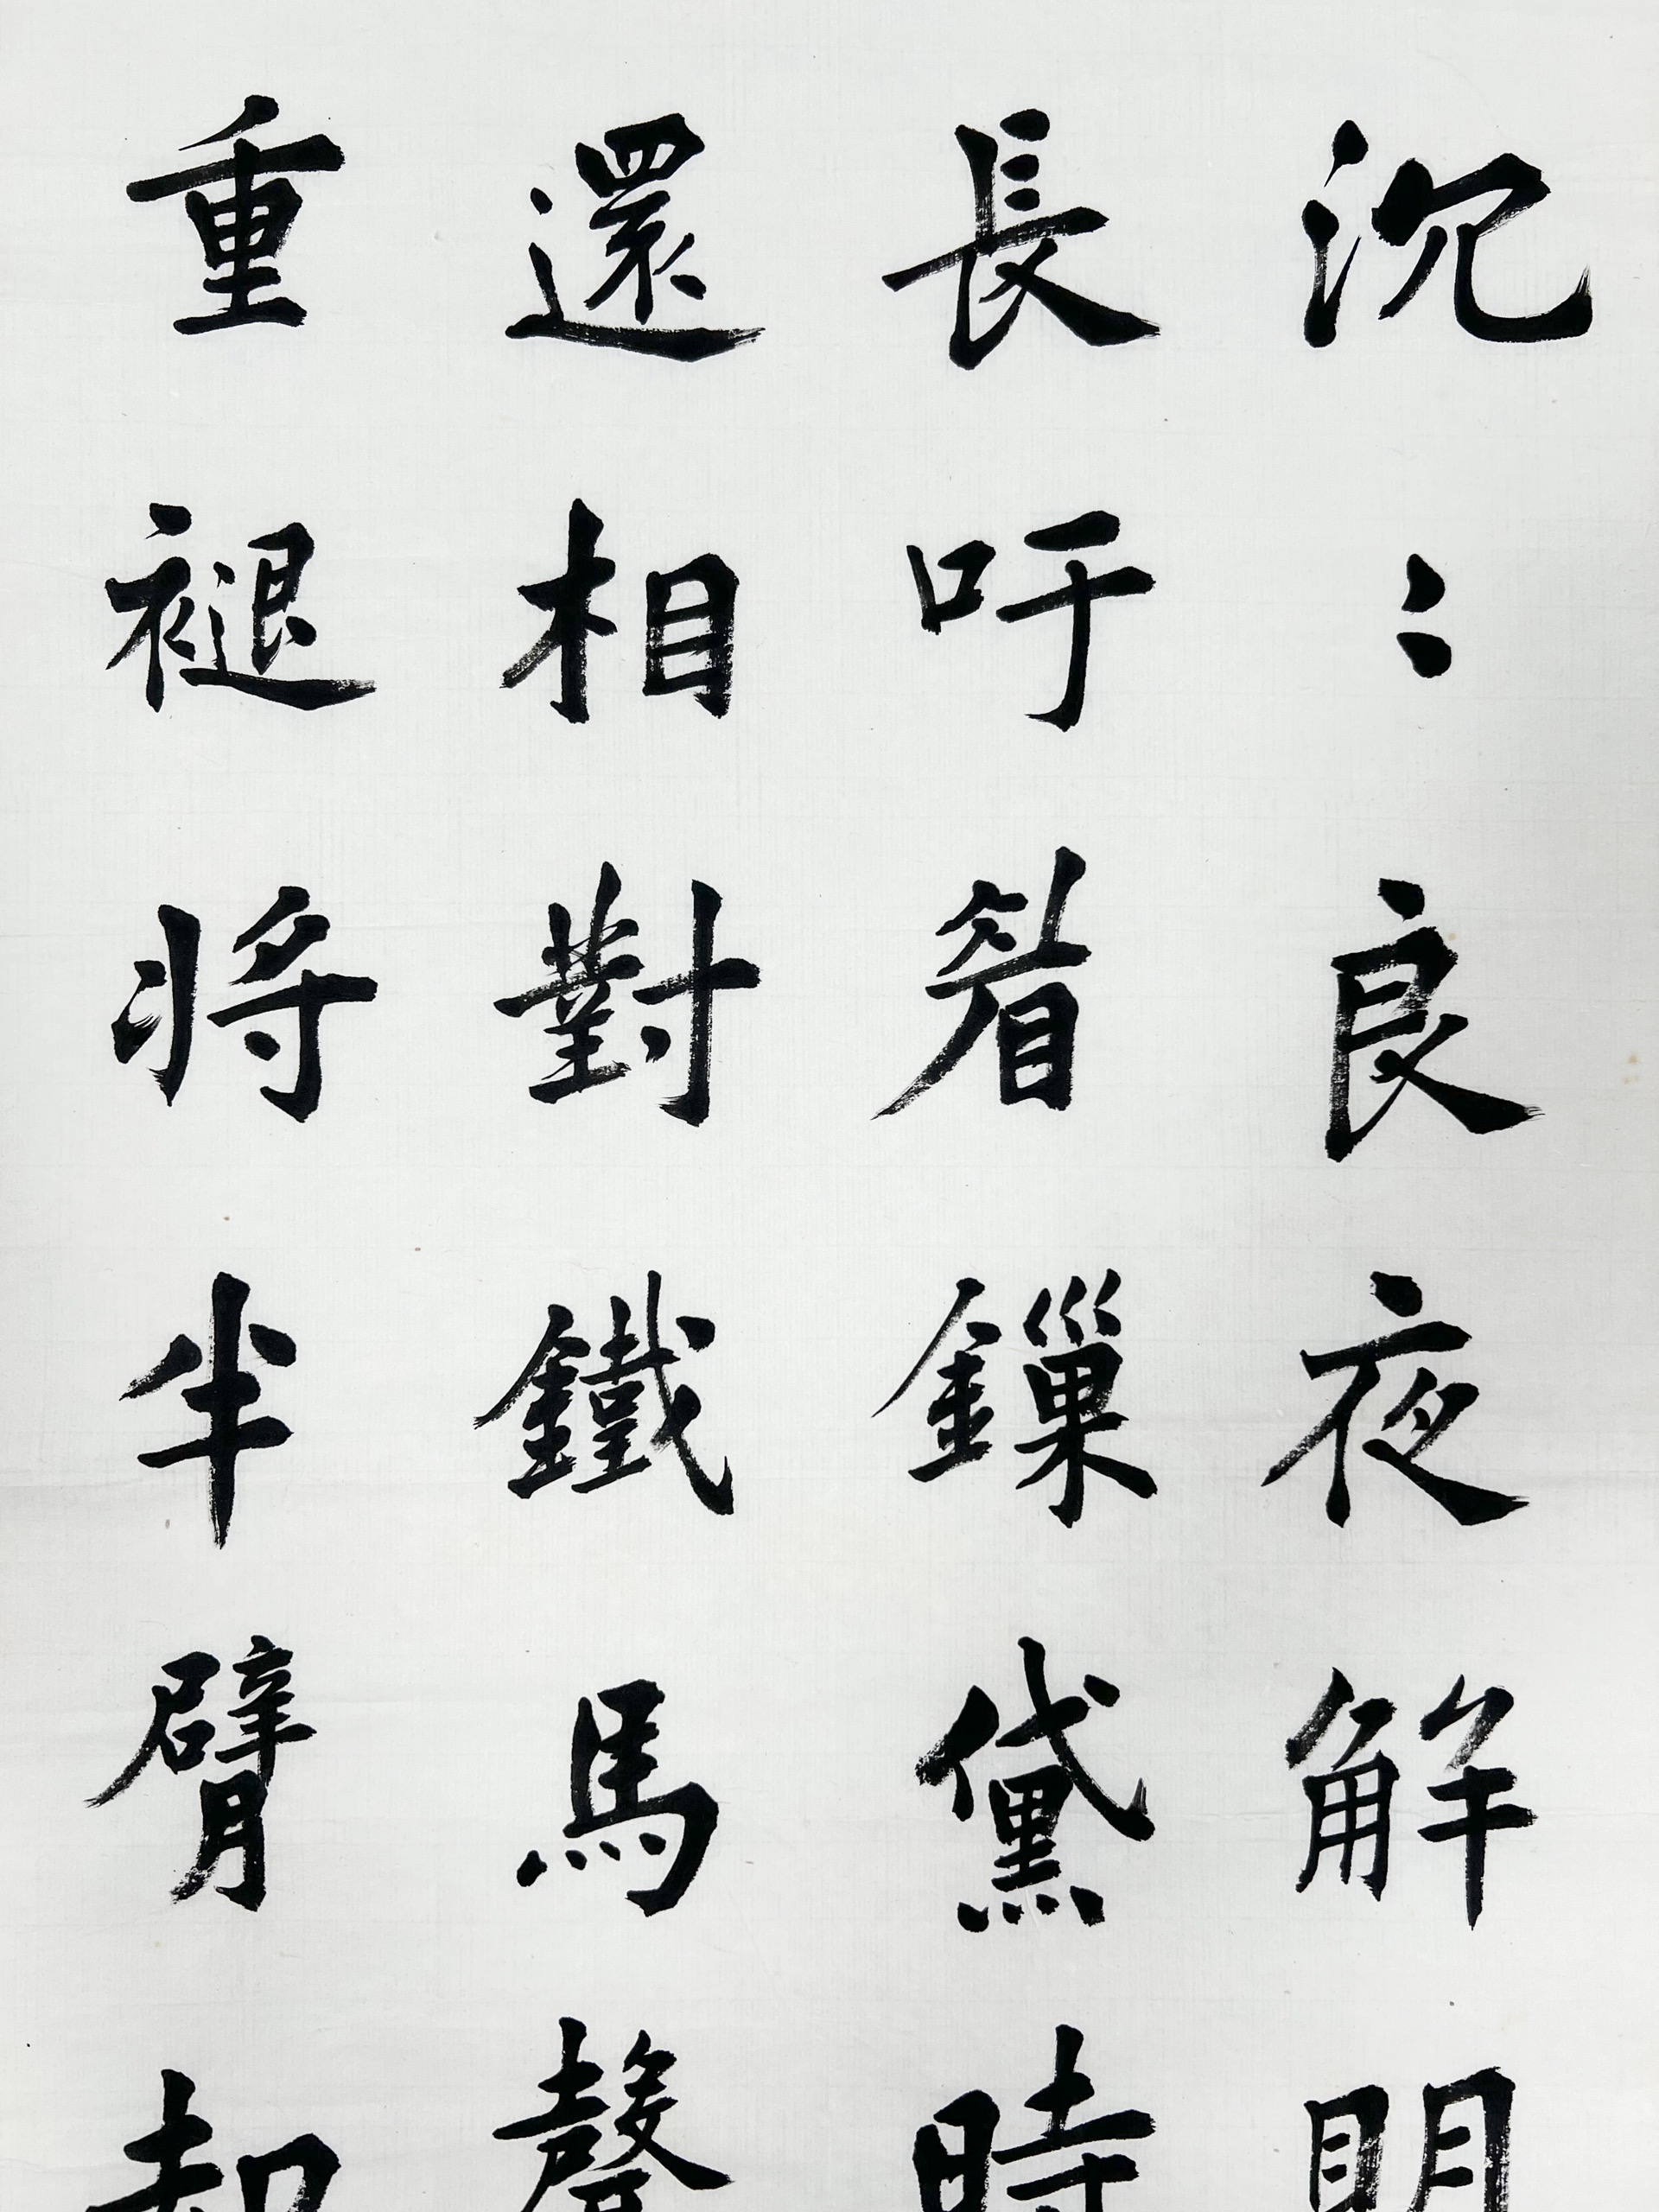 沉〻良夜解明
長吁鏁黛時
還相對鐵馬聲
重褪將半臂却